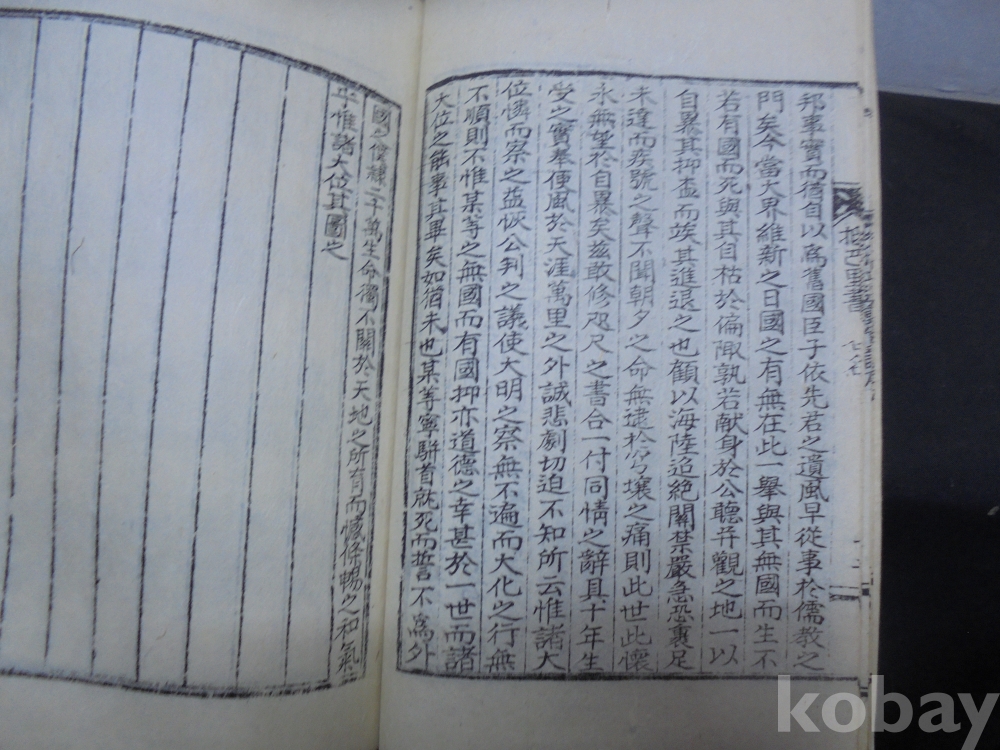 邦事實而徒自以爲舊國臣子依先君之遺風早從事於儒敎之
門矣今當大界維新之日國之有無在此一擧與其無國而生不
若有國而死與其自枯於偏陬孰若献身於公聽幷觀之地一以
自暴其抑盍而竢其進退之也顧以海陸迢絶關禁嚴急恐裹足
未達而疾號之聲不聞朝夕之命無逮於穹壤之痛則此世此懷
永無望於自暴矣玆敢修咫尺之書合一付同情之辭具十年生
受之實奉便風於天涯萬里之外誠悲劇切迫不知所云惟諸大
位憐而察之益恢公判之議使大明之察無不遍而大化之行無
不順則不惟某等之無國而有國抑亦道德之幸甚於一世而諸
大位之能事其畢矣如猶未也某等寧騈首就死而誓不爲外
國之僕隸二千萬生命獨不關於天地之所育而憾條暢之和氣
乎惟諸大位其圖之
巴里
書
kobay